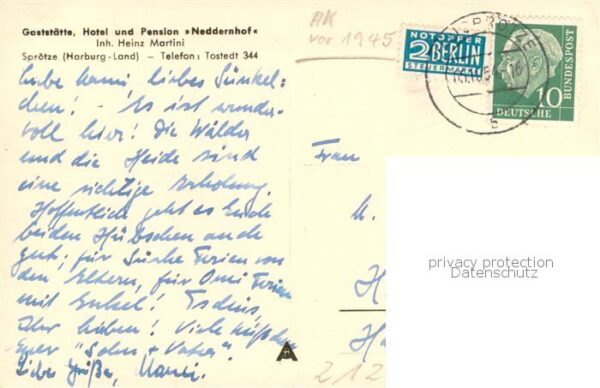 Gaststätte, Hotel und Pension »Neddernhof«
Inh. Heinz Martini
Sprötze (Harburg-Land) – Telefon: Tostedt 344
AK
vor 1945
NOTOPFER
2 BERLIN
STEUERMARKE
SPRÖTZE
10
DEUTSCHE
BUNDESPOST
Liebe Omi, liebes Sünkel-
chen! - Es ist wunder-
voll hier! Die Wälder
und die Heide sind
eine richtige Erholung.
Hoffentlich geht es Euch
beiden Hübschen auch
gut; für Sünke Ferien von
den Eltern, für Omi Ferien
mit Enkel! Tschüs,
Ihr Lieben! Viele
Euer "Sohn + Vater".
Liebe Grüße,
Frau
M.
H
H
A
212
privacy protection
Datenschutz